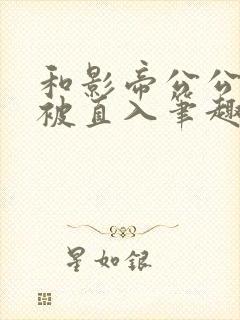 和影帝公公
被直入笔趣
星如银